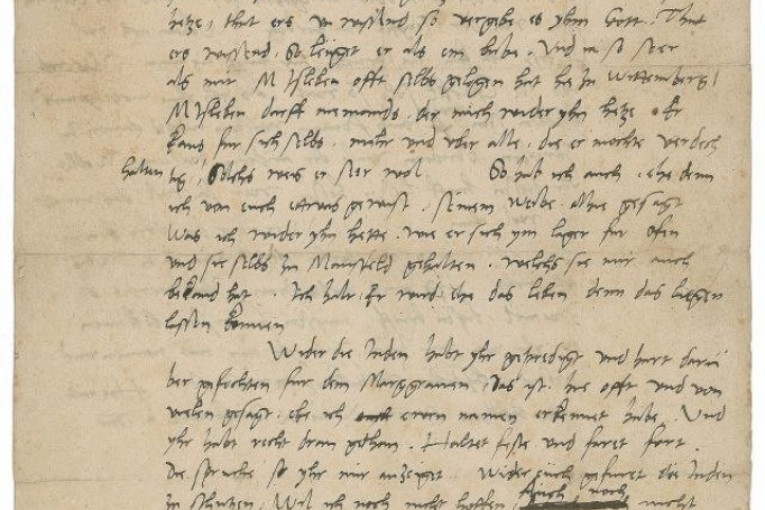 hetze, thut ers vnwissend, so vergebe es yhm Gott, Thut
ers wissend, So leuget er als ein bube, Vnd ia so seer
als mir M Isleben offt selbs gelogen hat hie zu Wittemberg /
M Isleben darff niemands, der mich wider yhn hetze. Er
kans fur sich selbs, mehr vnd vber alle, die er mochte verdech
halten tig / Solchs weis er seer wol. So hab ich auch, ehe denn
ich von euch ettwas gewust, seinem weibe alhie gesagt
Was ich wider yhn hette, wie er sich ym lager fur ofen
vnd sie selbs zu Mansfeld gehalten, welchs sie mir auch
bekand hat. Ich halt, Er wird ehe das leben denn das liegen
lassen konnen
Wider die Juden habt yhr gepredigt vnd hart daru
ber gefochten fur dem Marggrauen, das ist hie offt vnd von
vielen gesagt, ehe ich ewren namen erkennet habe. Vnd
yhr habt recht dran gethan. Haltet feste vnd faret fort.
Die spruche so yhr mir anzeigt wider euch gefuret die Juden
zu schutzen, Wil ich noch nicht hoffen, auch noch nicht